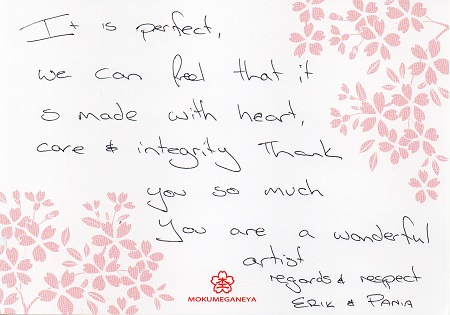 It is perfect,
we can feel that it
s made with heart,
care & integrity Thank
you so much
You are a wonderful
artist
regards & respect
ERIK & PANIA
MOKUMEGANEYA